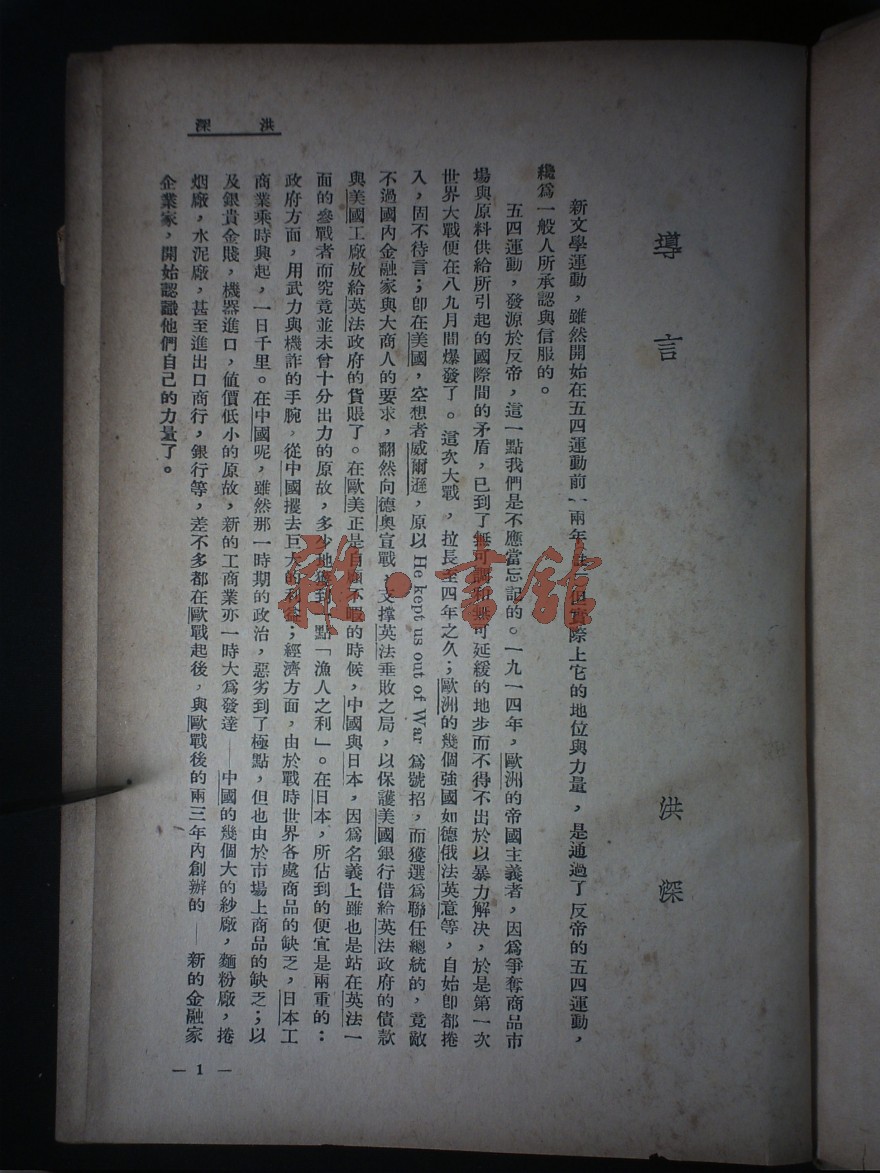 導言
洪深
新文學運動，雖然開始在五四運動前一兩年，但實際上它的地位與力量，是通過了反帝的五四運動，
纔爲一般人所承認與信服的。
五四運動，發源於反帝，這一點我們是不應當忘記的。一九一四年，歐洲的帝國主義者，因爲爭奪商品市
場與原料供給所引起的國際間的矛盾，已到了無可調和無可延緩的地步而不得不出於以暴力解決，於是第一次
世界大戰便在八九月間爆發了。這次大戰，拉長至四年之久；歐洲的幾個強國如德俄法英意等，自始卽都捲
入，固不待言；卽在美國，空想者威爾遜，原以 He kept us out of War 爲號招，而獲選爲聯任總統的，竟敵
不過國內金融家與大商人的要求，翻然向德奧宣戰，支撐英法垂敗之局，以保護美國銀行借給英法政府的債款
與美國工廠放給英法政府的貨賬了。在歐美正是自顧不暇的時候，中國與日本，因爲名義上雖也是站在英法一
面的參戰者而究竟並未曾十分出力的原故，多少地獲到一點「漁人之利」。在日本，所佔到的便宜是兩重的：
政府方面，用武力與機詐的手腕，從中國攫去巨大的利益；經濟方面，由於戰時世界各處商品的缺乏，日本工
商業乘時興起，一日千里。在中國呢，雖然那一時期的政治，惡劣到了極點，但也由於市場上商品的缺乏；以
及銀貴金賤，機器進口，値價低小的原故，新的工商業亦一時大爲發達——中國的幾個大的紗廠，麵粉廠，捲
烟廠，水泥廠，甚至進出口商行，銀行等，差不多都在歐戰起後，與歐戰後的兩三年內創辦的——新的金融家
企業家，開始認識他們自己的力量了。
洪深
— 1 —
雅·書館